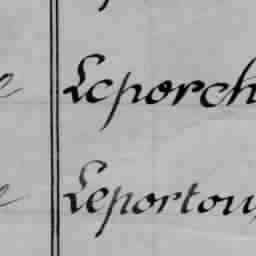 Leporch
Leportou